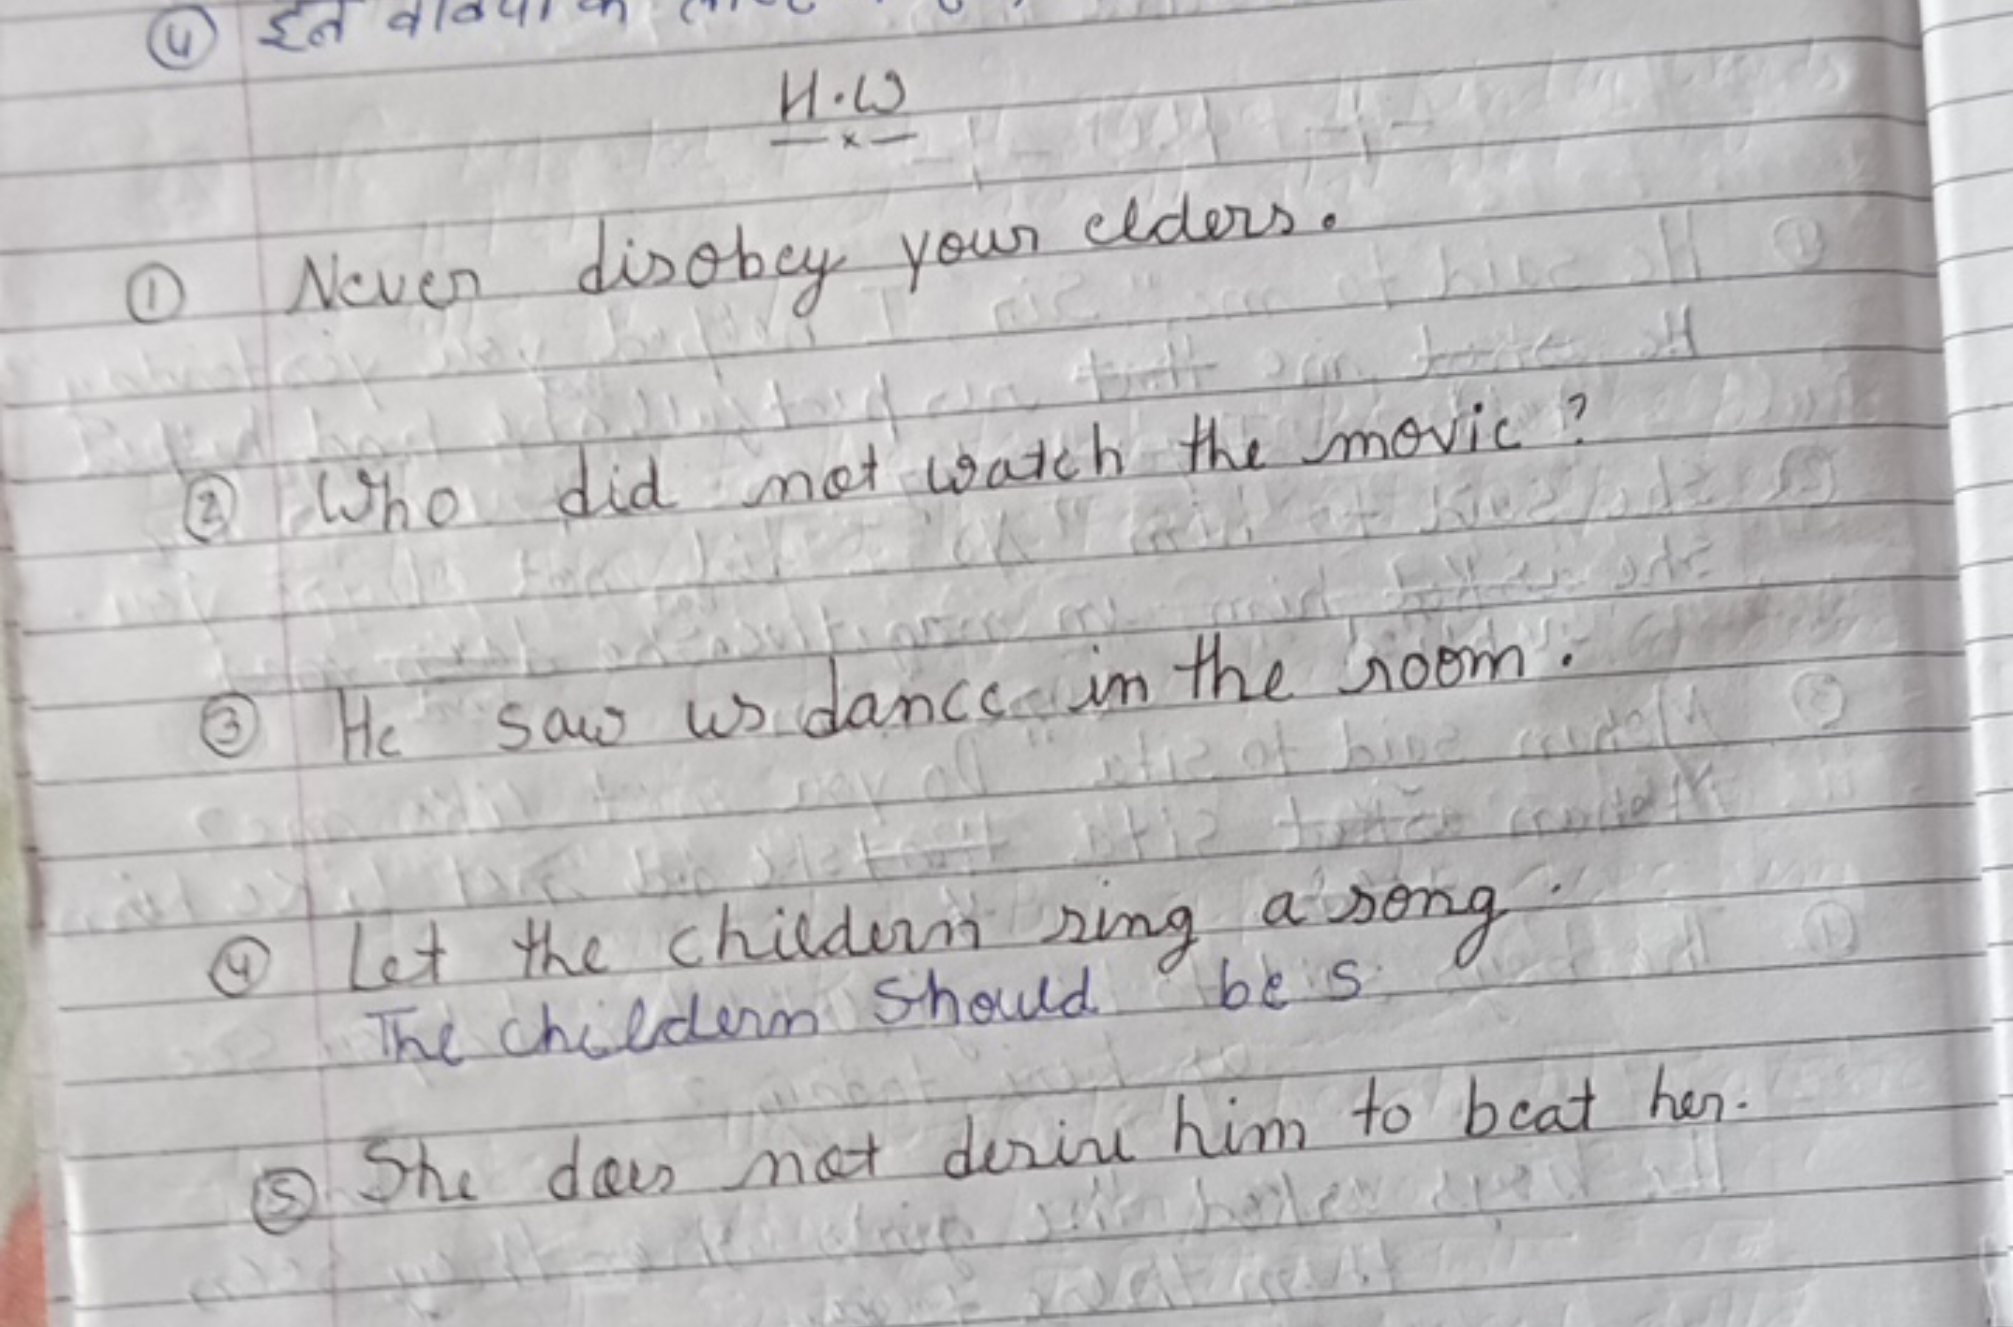 ④ इन वाक्यों के
H.W
① Never disobey your elders.
② Who did not watch the movie?
③ He saw us dance in the room.
④ Let the childern sing a song.
The childern should be s
⑤ She does not desire him to beat her.